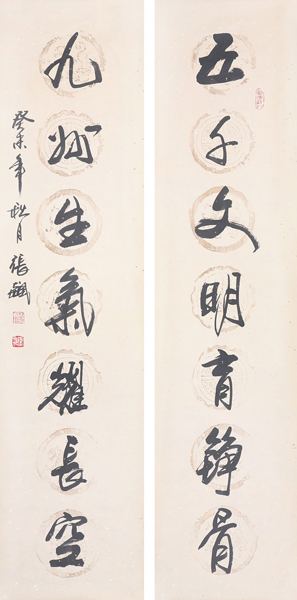 五千文明育铮骨
九州生氣耀長空
癸未年秋月張飚